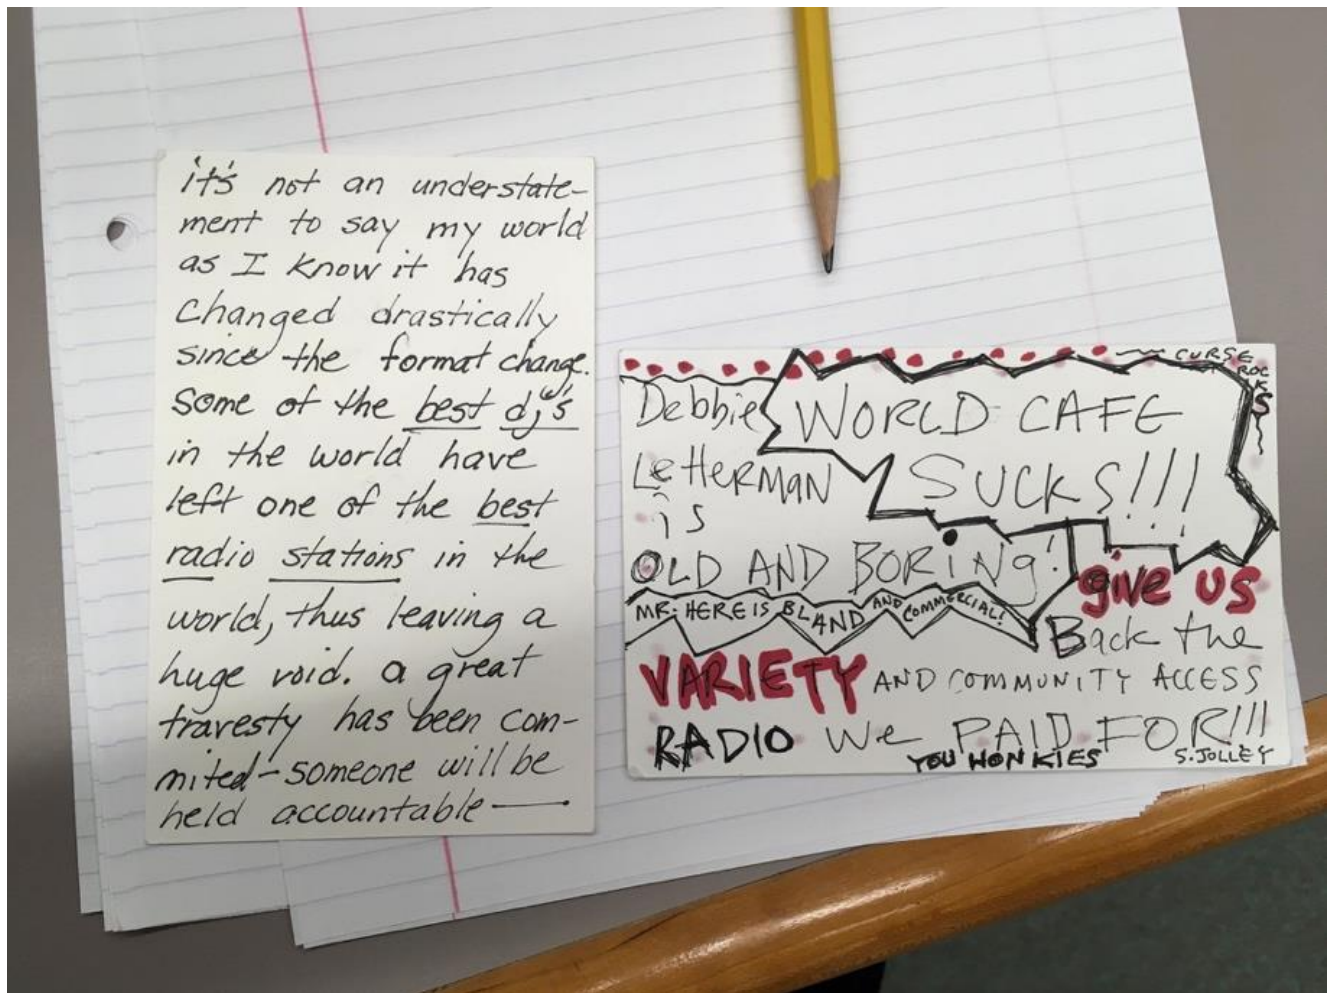 it's not an understate-
ment to say my world
as I know it has
changed drastically
since the format change.
Some of the best dj's
in the world have
left one of the best
radio stations in the
world, thus leaving a
huge void. a great
travesty has been com-
mited - someone will be
held accountable —
CURSE
ROC
K
S
WORLD CAFE
SUCKS!!!
Debbie
LeHERMAN
is
OLD AND BORiNg!
MR. HERE IS BLAND AND COMMERCIAL!
give us
Back the
VARIETY AND COMMUNITY ACCESS
RADIO We PAID FOR!!!
YOU HONKIES
S. JOLLEY